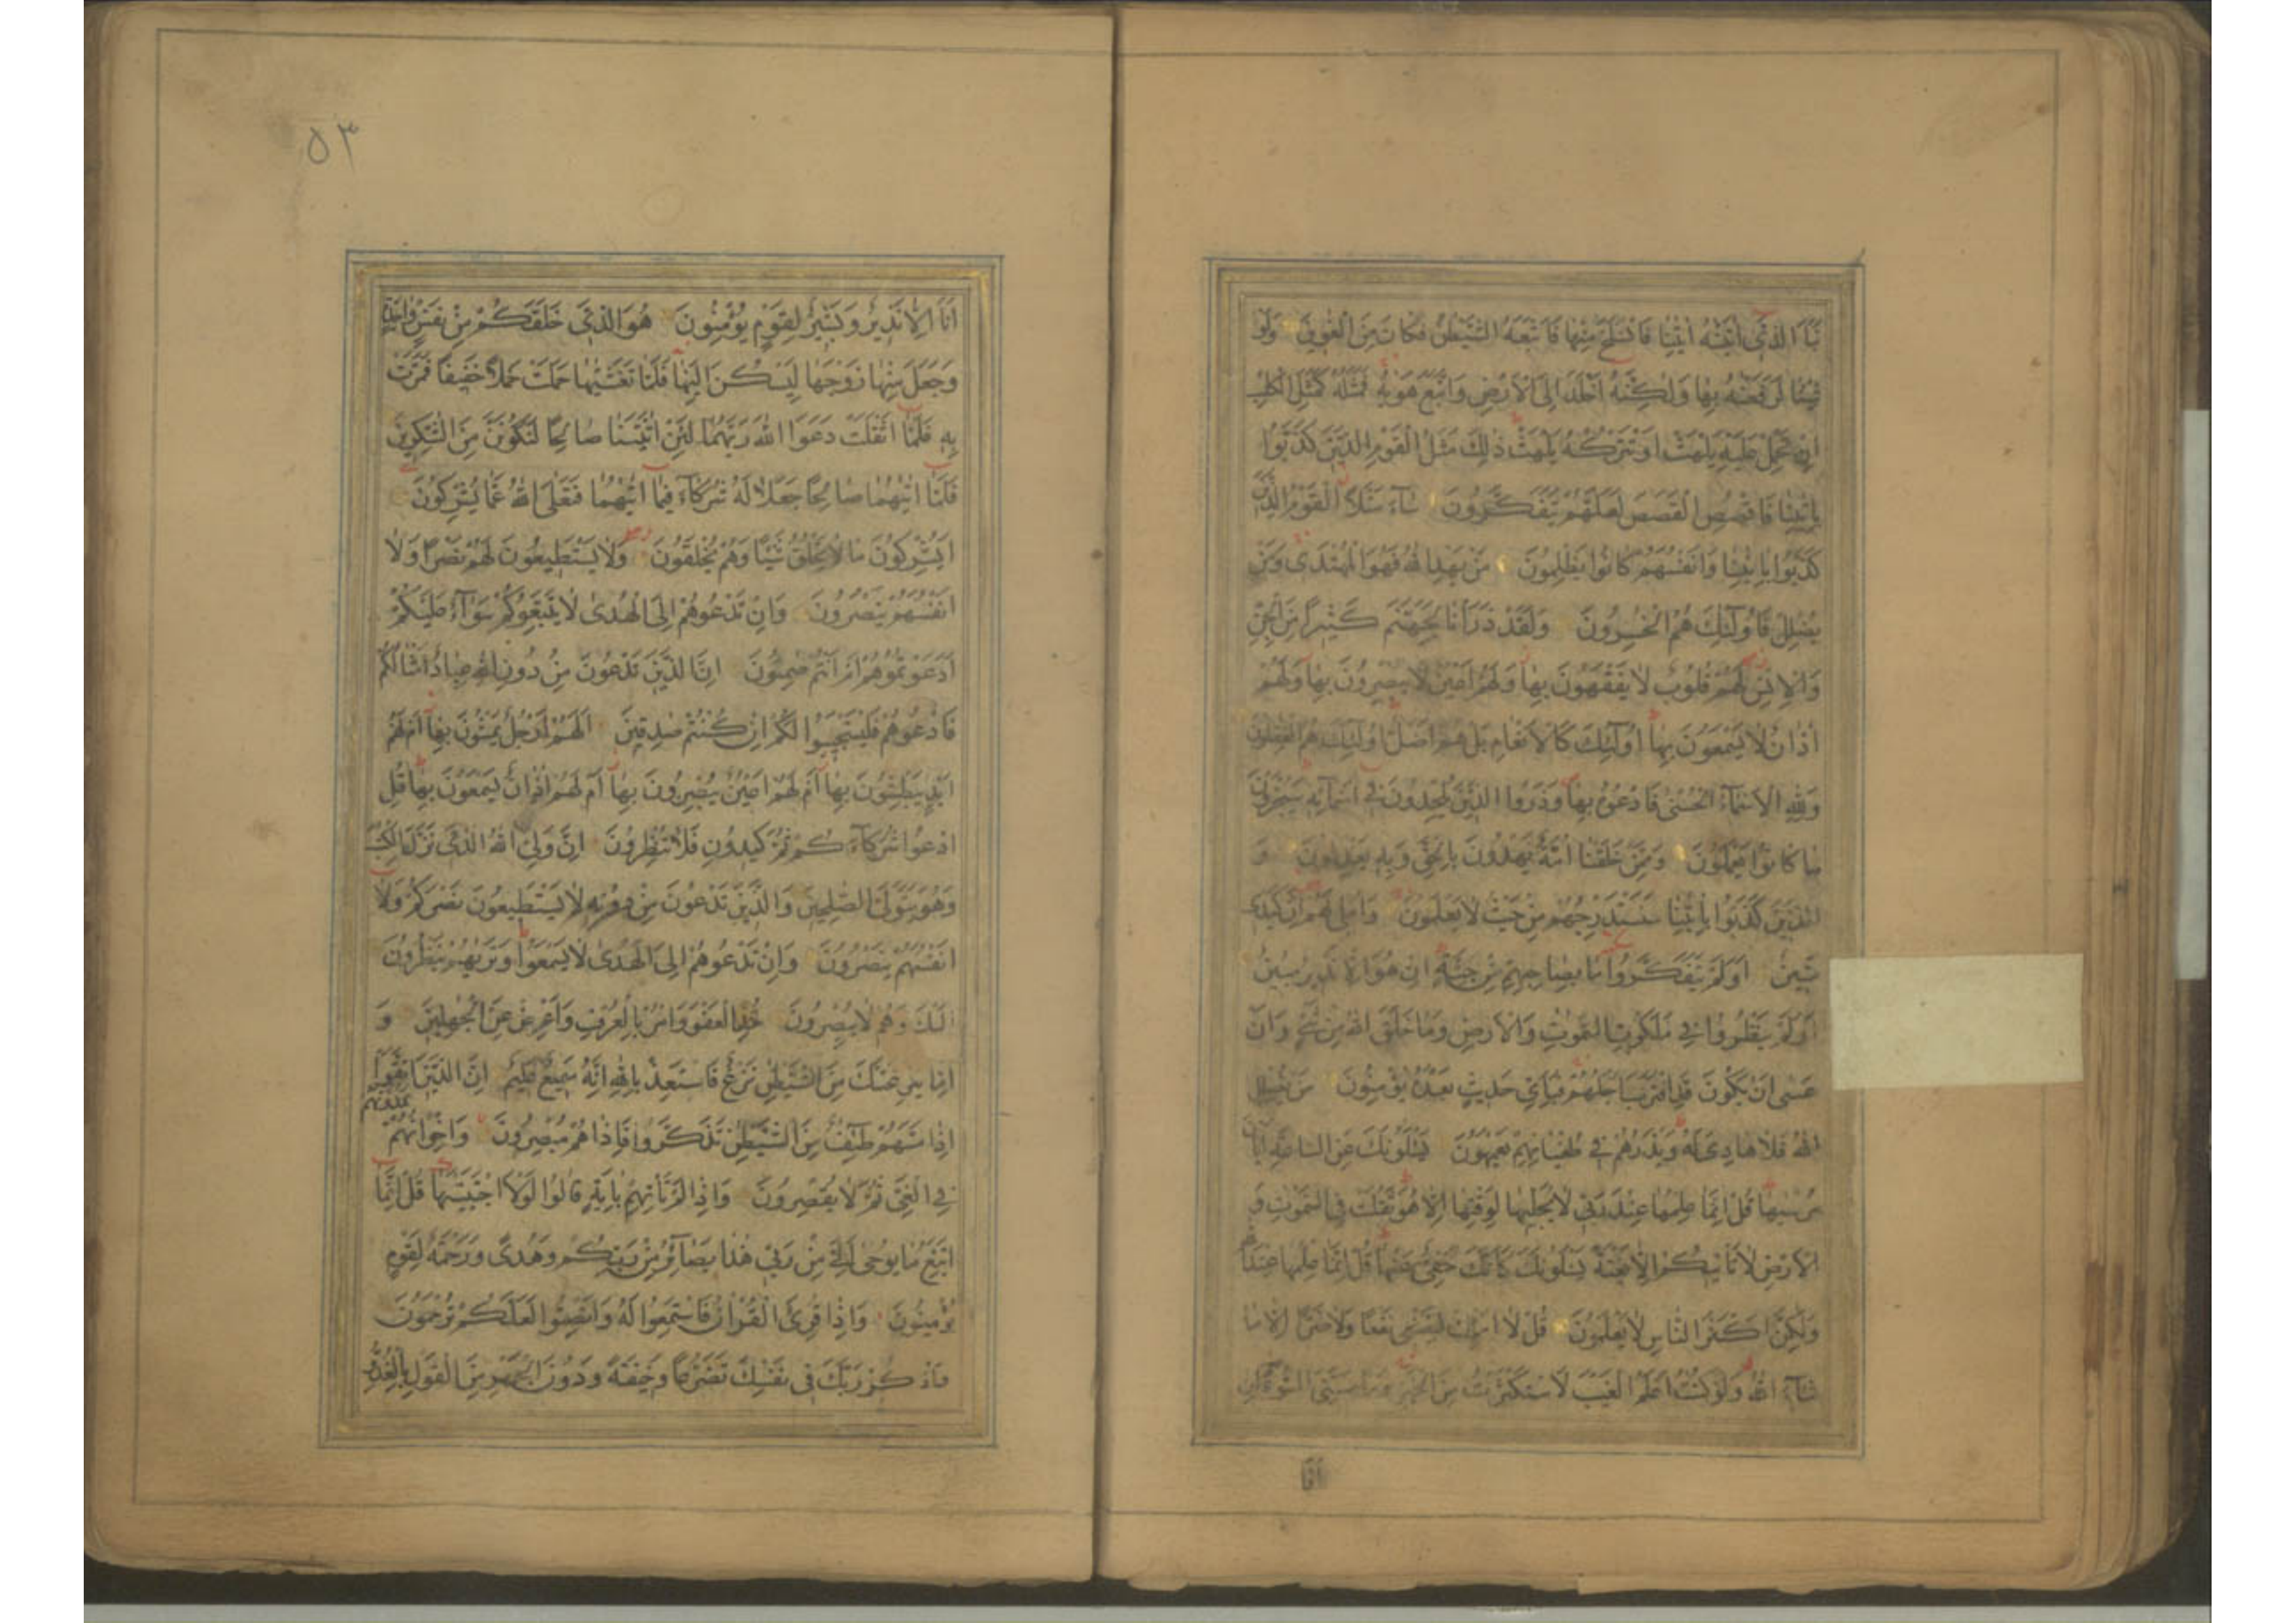 نَبَاَ الَّذِىٓ اٰتَيْنٰهُ اٰيٰتِنَا فَانْسَلَخَ مِنْهَا فَاَتْبَعَهُ الشَّيْطٰنُ فَكَانَ مِنَ الْغٰوِينَ وَلَوْ
شِئْنَا لَرَفَعْنٰهُ بِهَا وَلٰكِنَّهُ اَخْلَدَ اِلَى الْاَرْضِ وَاتَّبَعَ هَوٰيهُ فَمَثَلُهُ كَمَثَلِ الْكَلْبِ
اِنْ تَحْمِلْ عَلَيْهِ يَلْهَثْ اَوْ تَتْرُكْهُ يَلْهَثْ ذٰلِكَ مَثَلُ الْقَوْمِ الَّذِينَ كَذَّبُوا
بِاٰيٰتِنَا فَاقْصُصِ الْقَصَصَ لَعَلَّهُمْ يَتَفَكَّرُونَ سَآءَ مَثَلًا الْقَوْمُ الَّذِينَ
كَذَّبُوا بِاٰيٰتِنَا وَاَنْفُسَهُمْ كَانُوا يَظْلِمُونَ مَنْ يَهْدِ اللّٰهُ فَهُوَ الْمُهْتَدِى وَمَنْ
يُضْلِلْ فَاُولٰٓئِكَ هُمُ الْخٰسِرُونَ وَلَقَدْ ذَرَاْنَا لِجَهَنَّمَ كَثِيرًا مِنَ الْجِنِّ
وَالْاِنْسِ لَهُمْ قُلُوبٌ لَا يَفْقَهُونَ بِهَا وَلَهُمْ اَعْيُنٌ لَا يُبْصِرُونَ بِهَا وَلَهُمْ
اٰذَانٌ لَا يَسْمَعُونَ بِهَا اُولٰٓئِكَ كَالْاَنْعَامِ بَلْ هُمْ اَضَلُّ اُولٰٓئِكَ هُمُ الْغٰفِلُونَ
وَلِلّٰهِ الْاَسْمَآءُ الْحُسْنٰى فَادْعُوهُ بِهَا وَذَرُوا الَّذِينَ يُلْحِدُونَ فِى اَسْمَآئِهِ سَيُجْزَوْنَ
مَا كَانُوا يَعْمَلُونَ وَمِمَّنْ خَلَقْنَا اُمَّةٌ يَهْدُونَ بِالْحَقِّ وَبِهِ يَعْدِلُونَ وَ
الَّذِينَ كَذَّبُوا بِاٰيٰتِنَا سَنَسْتَدْرِجُهُمْ مِنْ حَيْثُ لَا يَعْلَمُونَ وَاُمْلِى لَهُمْ اِنَّ كَيْدِى
مَتِينٌ اَوَلَمْ يَتَفَكَّرُوا مَا بِصَاحِبِهِمْ مِنْ جِنَّةٍ اِنْ هُوَ اِلَّا نَذِيرٌ مُبِينٌ
اَوَلَمْ يَنْظُرُوا فِى مَلَكُوتِ السَّمٰوٰتِ وَالْاَرْضِ وَمَا خَلَقَ اللّٰهُ مِنْ شَىْءٍ وَاَنْ
عَسٰى اَنْ يَكُونَ قَدِ اقْتَرَبَ اَجَلُهُمْ فَبِاَىِّ حَدِيثٍ بَعْدَهُ يُؤْمِنُونَ مَنْ يُضْلِلِ
اللّٰهُ فَلَا هَادِىَ لَهُ وَيَذَرُهُمْ فِى طُغْيَانِهِمْ يَعْمَهُونَ يَسْئَلُونَكَ عَنِ السَّاعَةِ اَيَّانَ
مُرْسٰيهَا قُلْ اِنَّمَا عِلْمُهَا عِنْدَ رَبِّى لَا يُجَلِّيهَا لِوَقْتِهَا اِلَّا هُوَ ثَقُلَتْ فِى السَّمٰوٰتِ وَ
الْاَرْضِ لَا تَاْتِيكُمْ اِلَّا بَغْتَةً يَسْئَلُونَكَ كَاَنَّكَ حَفِىٌّ عَنْهَا قُلْ اِنَّمَا عِلْمُهَا عِنْدَ اللّٰهِ
وَلٰكِنَّ اَكْثَرَ النَّاسِ لَا يَعْلَمُونَ قُلْ لَا اَمْلِكُ لِنَفْسِى نَفْعًا وَلَا ضَرًّا اِلَّا مَا
شَآءَ اللّٰهُ وَلَوْ كُنْتُ اَعْلَمُ الْغَيْبَ لَاسْتَكْثَرْتُ مِنَ الْخَيْرِ وَمَا مَسَّنِىَ السُّوٓءُ اِنْ
٥٣
اَنَا اِلَّا نَذِيرٌ وَبَشِيرٌ لِقَوْمٍ يُؤْمِنُونَ هُوَ الَّذِى خَلَقَكُمْ مِنْ نَفْسٍ وَاحِدَةٍ
وَجَعَلَ مِنْهَا زَوْجَهَا لِيَسْكُنَ اِلَيْهَا فَلَمَّا تَغَشّٰيهَا حَمَلَتْ حَمْلًا خَفِيفًا فَمَرَّتْ
بِهِ فَلَمَّا اَثْقَلَتْ دَعَوَا اللّٰهَ رَبَّهُمَا لَئِنْ اٰتَيْتَنَا صَالِحًا لَنَكُونَنَّ مِنَ الشّٰكِرِينَ
فَلَمَّا اٰتٰيهُمَا صَالِحًا جَعَلَا لَهُ شُرَكَآءَ فِيمَا اٰتٰيهُمَا فَتَعٰلَى اللّٰهُ عَمَّا يُشْرِكُونَ
اَيُشْرِكُونَ مَا لَا يَخْلُقُ شَيْئًا وَهُمْ يُخْلَقُونَ وَلَا يَسْتَطِيعُونَ لَهُمْ نَصْرًا وَلَا
اَنْفُسَهُمْ يَنْصُرُونَ وَاِنْ تَدْعُوهُمْ اِلَى الْهُدٰى لَا يَتَّبِعُوكُمْ سَوَآءٌ عَلَيْكُمْ
اَدَعَوْتُمُوهُمْ اَمْ اَنْتُمْ صٰمِتُونَ اِنَّ الَّذِينَ تَدْعُونَ مِنْ دُونِ اللّٰهِ عِبَادٌ اَمْثَالُكُمْ
فَادْعُوهُمْ فَلْيَسْتَجِيبُوا لَكُمْ اِنْ كُنْتُمْ صٰدِقِينَ اَلَهُمْ اَرْجُلٌ يَمْشُونَ بِهَا اَمْ لَهُمْ
اَيْدٍ يَبْطِشُونَ بِهَا اَمْ لَهُمْ اَعْيُنٌ يُبْصِرُونَ بِهَا اَمْ لَهُمْ اٰذَانٌ يَسْمَعُونَ بِهَا قُلِ
ادْعُوا شُرَكَآءَكُمْ ثُمَّ كِيدُونِ فَلَا تُنْظِرُونَ اِنَّ وَلِىَّ اللّٰهُ الَّذِى نَزَّلَ الْكِتٰبَ
وَهُوَ يَتَوَلَّى الصّٰلِحِينَ وَالَّذِينَ تَدْعُونَ مِنْ دُونِهِ لَا يَسْتَطِيعُونَ نَصْرَكُمْ وَلَا
اَنْفُسَهُمْ يَنْصُرُونَ وَاِنْ تَدْعُوهُمْ اِلَى الْهُدٰى لَا يَسْمَعُوا وَتَرٰيهُمْ يَنْظُرُونَ
اِلَيْكَ وَهُمْ لَا يُبْصِرُونَ خُذِ الْعَفْوَ وَاْمُرْ بِالْعُرْفِ وَاَعْرِضْ عَنِ الْجٰهِلِينَ وَ
اِمَّا يَنْزَغَنَّكَ مِنَ الشَّيْطٰنِ نَزْغٌ فَاسْتَعِذْ بِاللّٰهِ اِنَّهُ سَمِيعٌ عَلِيمٌ اِنَّ الَّذِينَ اتَّقَوْا
اِذَا مَسَّهُمْ طٰٓئِفٌ مِنَ الشَّيْطٰنِ تَذَكَّرُوا فَاِذَا هُمْ مُبْصِرُونَ وَاِخْوَانُهُمْ يَمُدُّونَهُمْ
فِى الْغَىِّ ثُمَّ لَا يُقْصِرُونَ وَاِذَا لَمْ تَاْتِهِمْ بِاٰيَةٍ قَالُوا لَوْلَا اجْتَبَيْتَهَا قُلْ اِنَّمَا
اَتَّبِعُ مَا يُوحٰى اِلَىَّ مِنْ رَبِّى هٰذَا بَصَآئِرُ مِنْ رَبِّكُمْ وَهُدًى وَرَحْمَةٌ لِقَوْمٍ
يُؤْمِنُونَ وَاِذَا قُرِئَ الْقُرْاٰنُ فَاسْتَمِعُوا لَهُ وَاَنْصِتُوا لَعَلَّكُمْ تُرْحَمُونَ
وَاذْكُرْ رَبَّكَ فِى نَفْسِكَ تَضَرُّعًا وَخِيفَةً وَدُونَ الْجَهْرِ مِنَ الْقَوْلِ بِالْغُدُوِّ